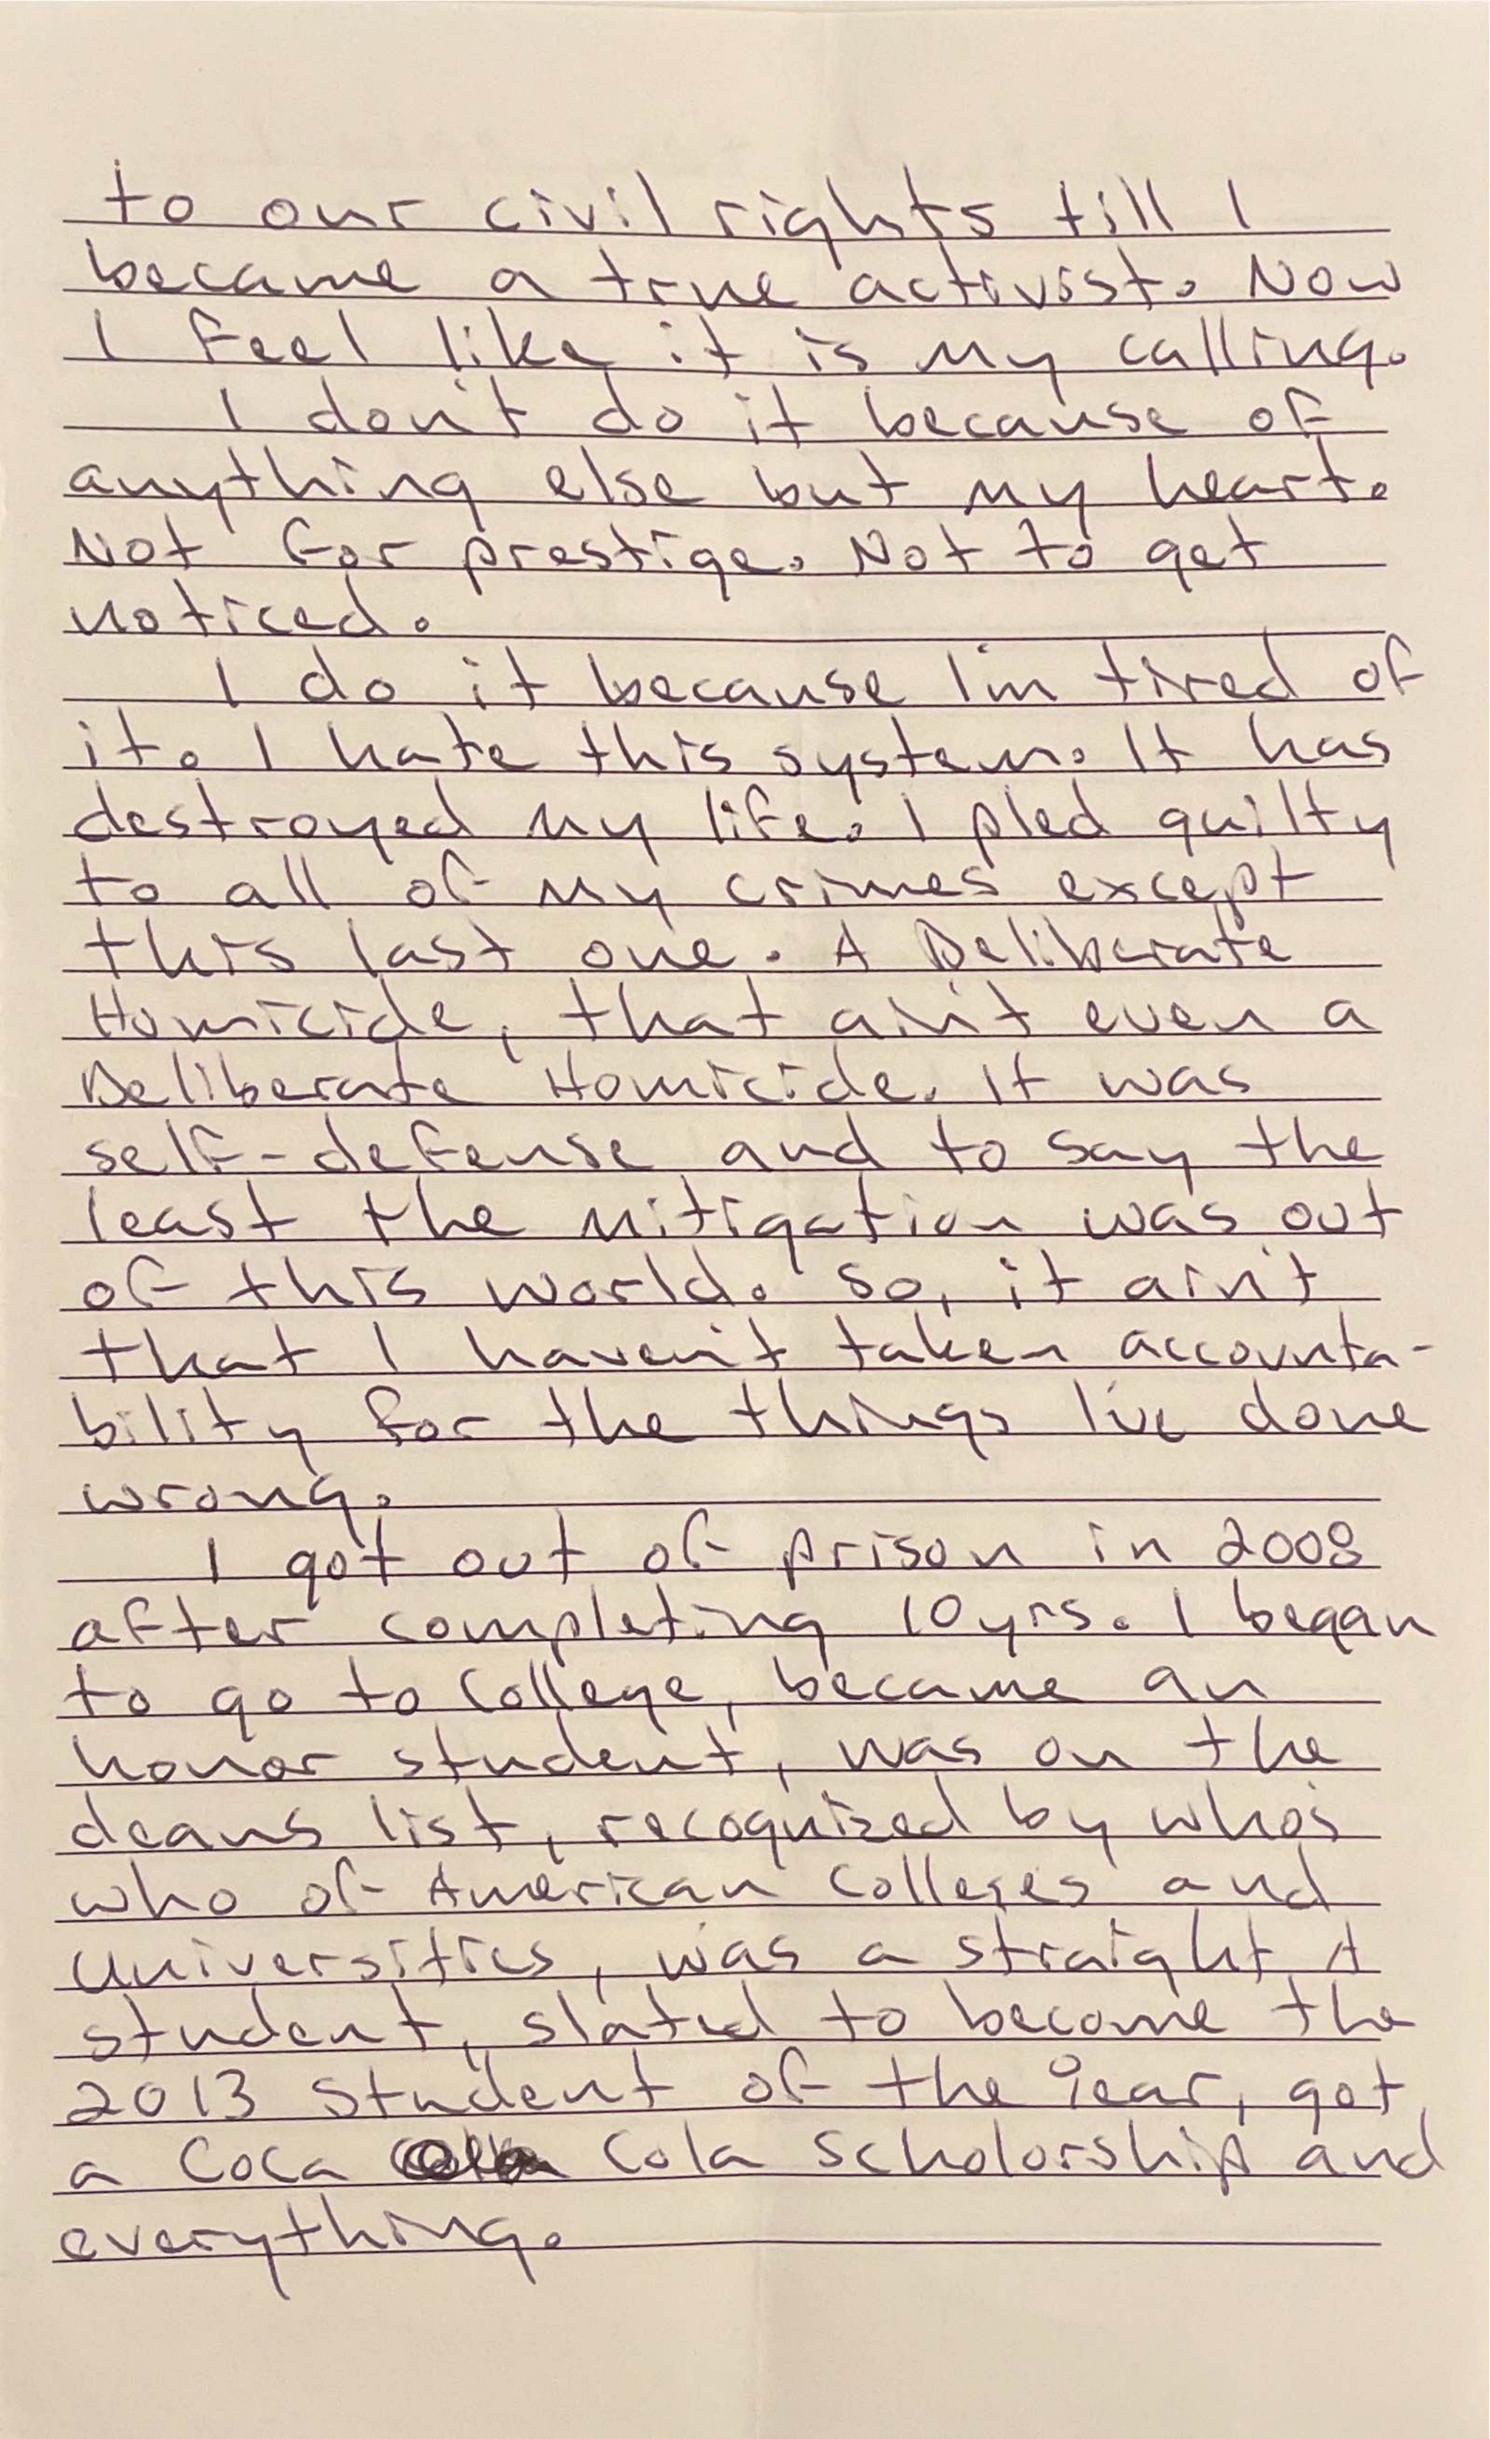 to our civil rights till I
became a true activist. Now
I feel like it is my calling.
I don't do it because of
anything else but my heart.
Not for prestige. Not to get
noticed.
I do it because I'm tired of
it. I hate this system. It has
destroyed my life. I pled guilty
to all of my crimes except
this last one. A Deliberate
Homicide, that ain't even a
Deliberate Homicide. It was
self-defense and to say the
least the mitigation was out
of this world. So, it ain't
that I haven't taken accounta-
bility for the things I've done
wrong.
I got out of prison in 2008
after completing 10yrs. I began
to go to College, became an
honor student, was on the
deans list, recognized by who's
who of American Colleges and
Universities, was a straight A
student, slated to become the
2013 Student of the Year, got
a Coca Cola Scholorship and
everything.